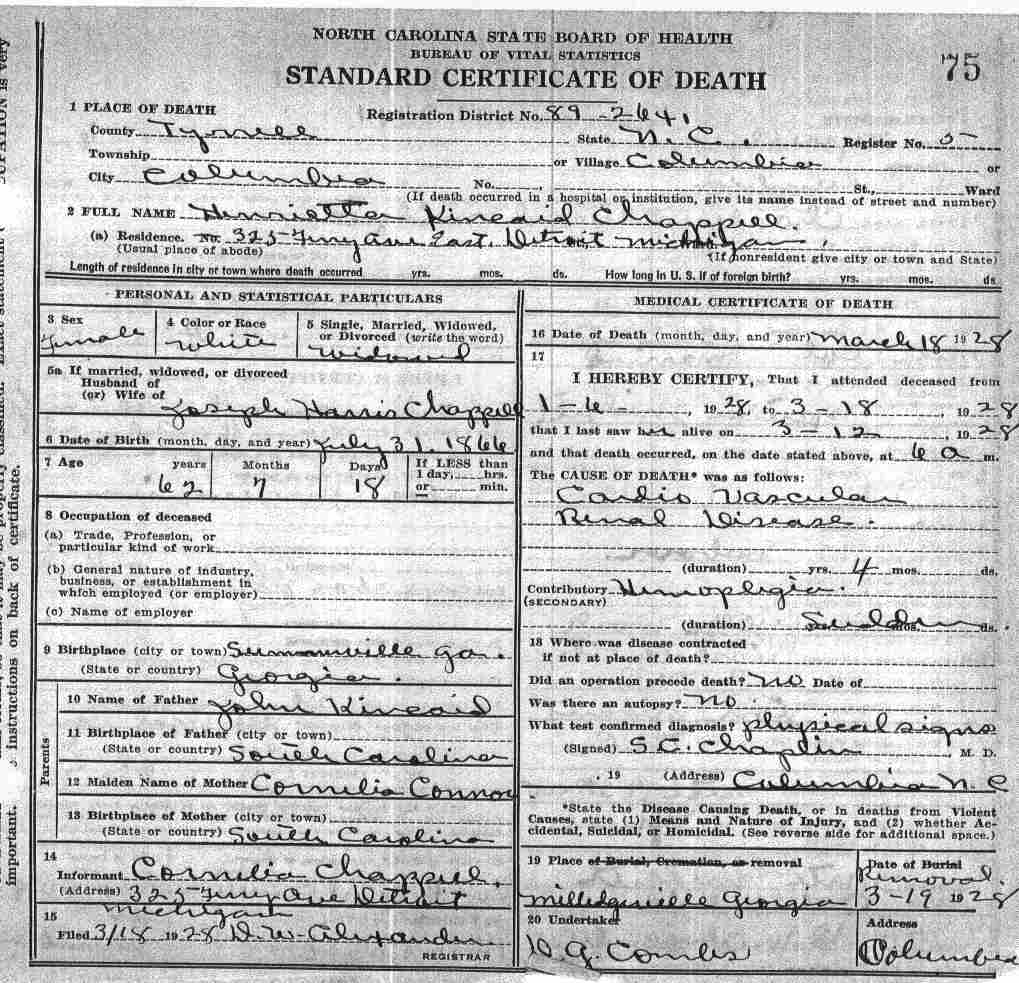 NORTH CAROLINA STATE BOARD OF HEALTH
BUREAU OF VITAL STATISTICS
STANDARD CERTIFICATE OF DEATH
75
1 PLACE OF DEATH
Registration District No. 89-2641
County Tyrrell State N.C. Register No. 5
Township or Village Columbia or
City Columbia No. , St., Ward
(If death occurred in a hospital or institution, give its name instead of street and number)
2 FULL NAME Henrietta Kincaid Chappell.
(a) Residence. No. 325 Ferry Ave East, Detroit Michigan,
(Usual place of abode) (If nonresident give city or town and State)
Length of residence in city or town where death occurred yrs. mos. ds. How long in U. S. if of foreign birth? yrs. mos. ds.
PERSONAL AND STATISTICAL PARTICULARS
3 Sex
Female
4 Color or Race
White
5 Single, Married, Widowed,
or Divorced (write the word)
Widowed
5a If married, widowed, or divorced
Husband of
(or) Wife of Joseph Harris Chappell
6 Date of Birth (month, day, and year) July 31. 1866
7 Age years Months Days If LESS than
1 day, hrs.
62 7 18 or min.
8 Occupation of deceased
(a) Trade, Profession, or
particular kind of work
(b) General nature of industry,
business, or establishment in
which employed (or employer)
(c) Name of employer
9 Birthplace (city or town) Summerville Ga.
(State or country) Georgia.
Parents
10 Name of Father John Kincaid
11 Birthplace of Father (city or town)
(State or country) South Carolina
12 Maiden Name of Mother Cornelia Connor
13 Birthplace of Mother (city or town)
(State or country) South Carolina
14
Informant Cornelia Chappell.
(Address) 325 Ferry Ave Detroit
Michigan
15
Filed 3/18 1928 D. W. Alexander
REGISTRAR
MEDICAL CERTIFICATE OF DEATH
16 Date of Death (month, day, and year) March 18 1928
17
I HEREBY CERTIFY, That I attended deceased from
1-6-, 1928, to 3-18, 1928
that I last saw her alive on 3-12, 1928
and that death occurred, on the date stated above, at 6 a m.
The CAUSE OF DEATH* was as follows:
Cardio Vascular
Renal Disease.
(duration) yrs. 4 mos. ds.
Contributory Hemoplegia.
(SECONDARY)
(duration) Sudden mos. ds.
18 Where was disease contracted
if not at place of death?
Did an operation precede death? No Date of
Was there an autopsy? No.
What test confirmed diagnosis? physical signs
(Signed) S.C. Chaplin M. D.
, 19 (Address) Columbia N.C
*State the Disease Causing Death, or in deaths from Violent
Causes, state (1) Means and Nature of Injury, and (2) whether Ac-
cidental, Suicidal, or Homicidal. (See reverse side for additional space.)
19 Place of Burial, Cremation, or removal
Milledgeville Georgia
Date of Burial
Removal.
3-19 1928
20 Undertaker
D. G. Combs
Address
Columbia
important.
instructions on back of certificate.